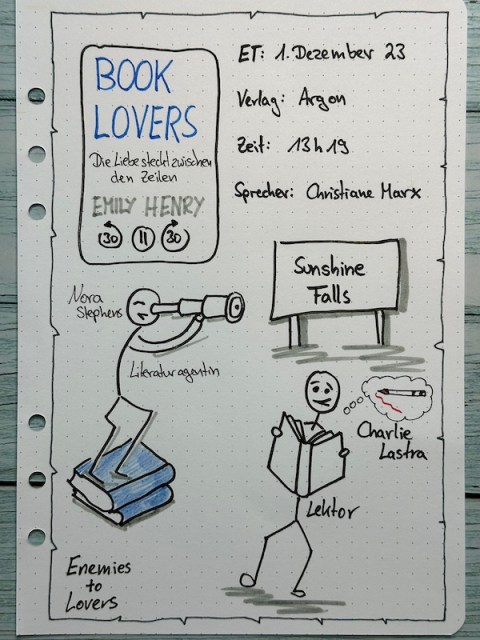 BOOK
LOVERS
Die Liebe steckt zwischen
den Zeilen
EMILY HENRY
30 30
ET: 1. Dezember 23
Verlag: Argon
Zeit: 13h19
Sprecher: Christiane Marx
Sunshine
Falls
Nora
Stephens
Literaturagentin
Charlie
Lastra
Lektor
Enemies
to
Lovers